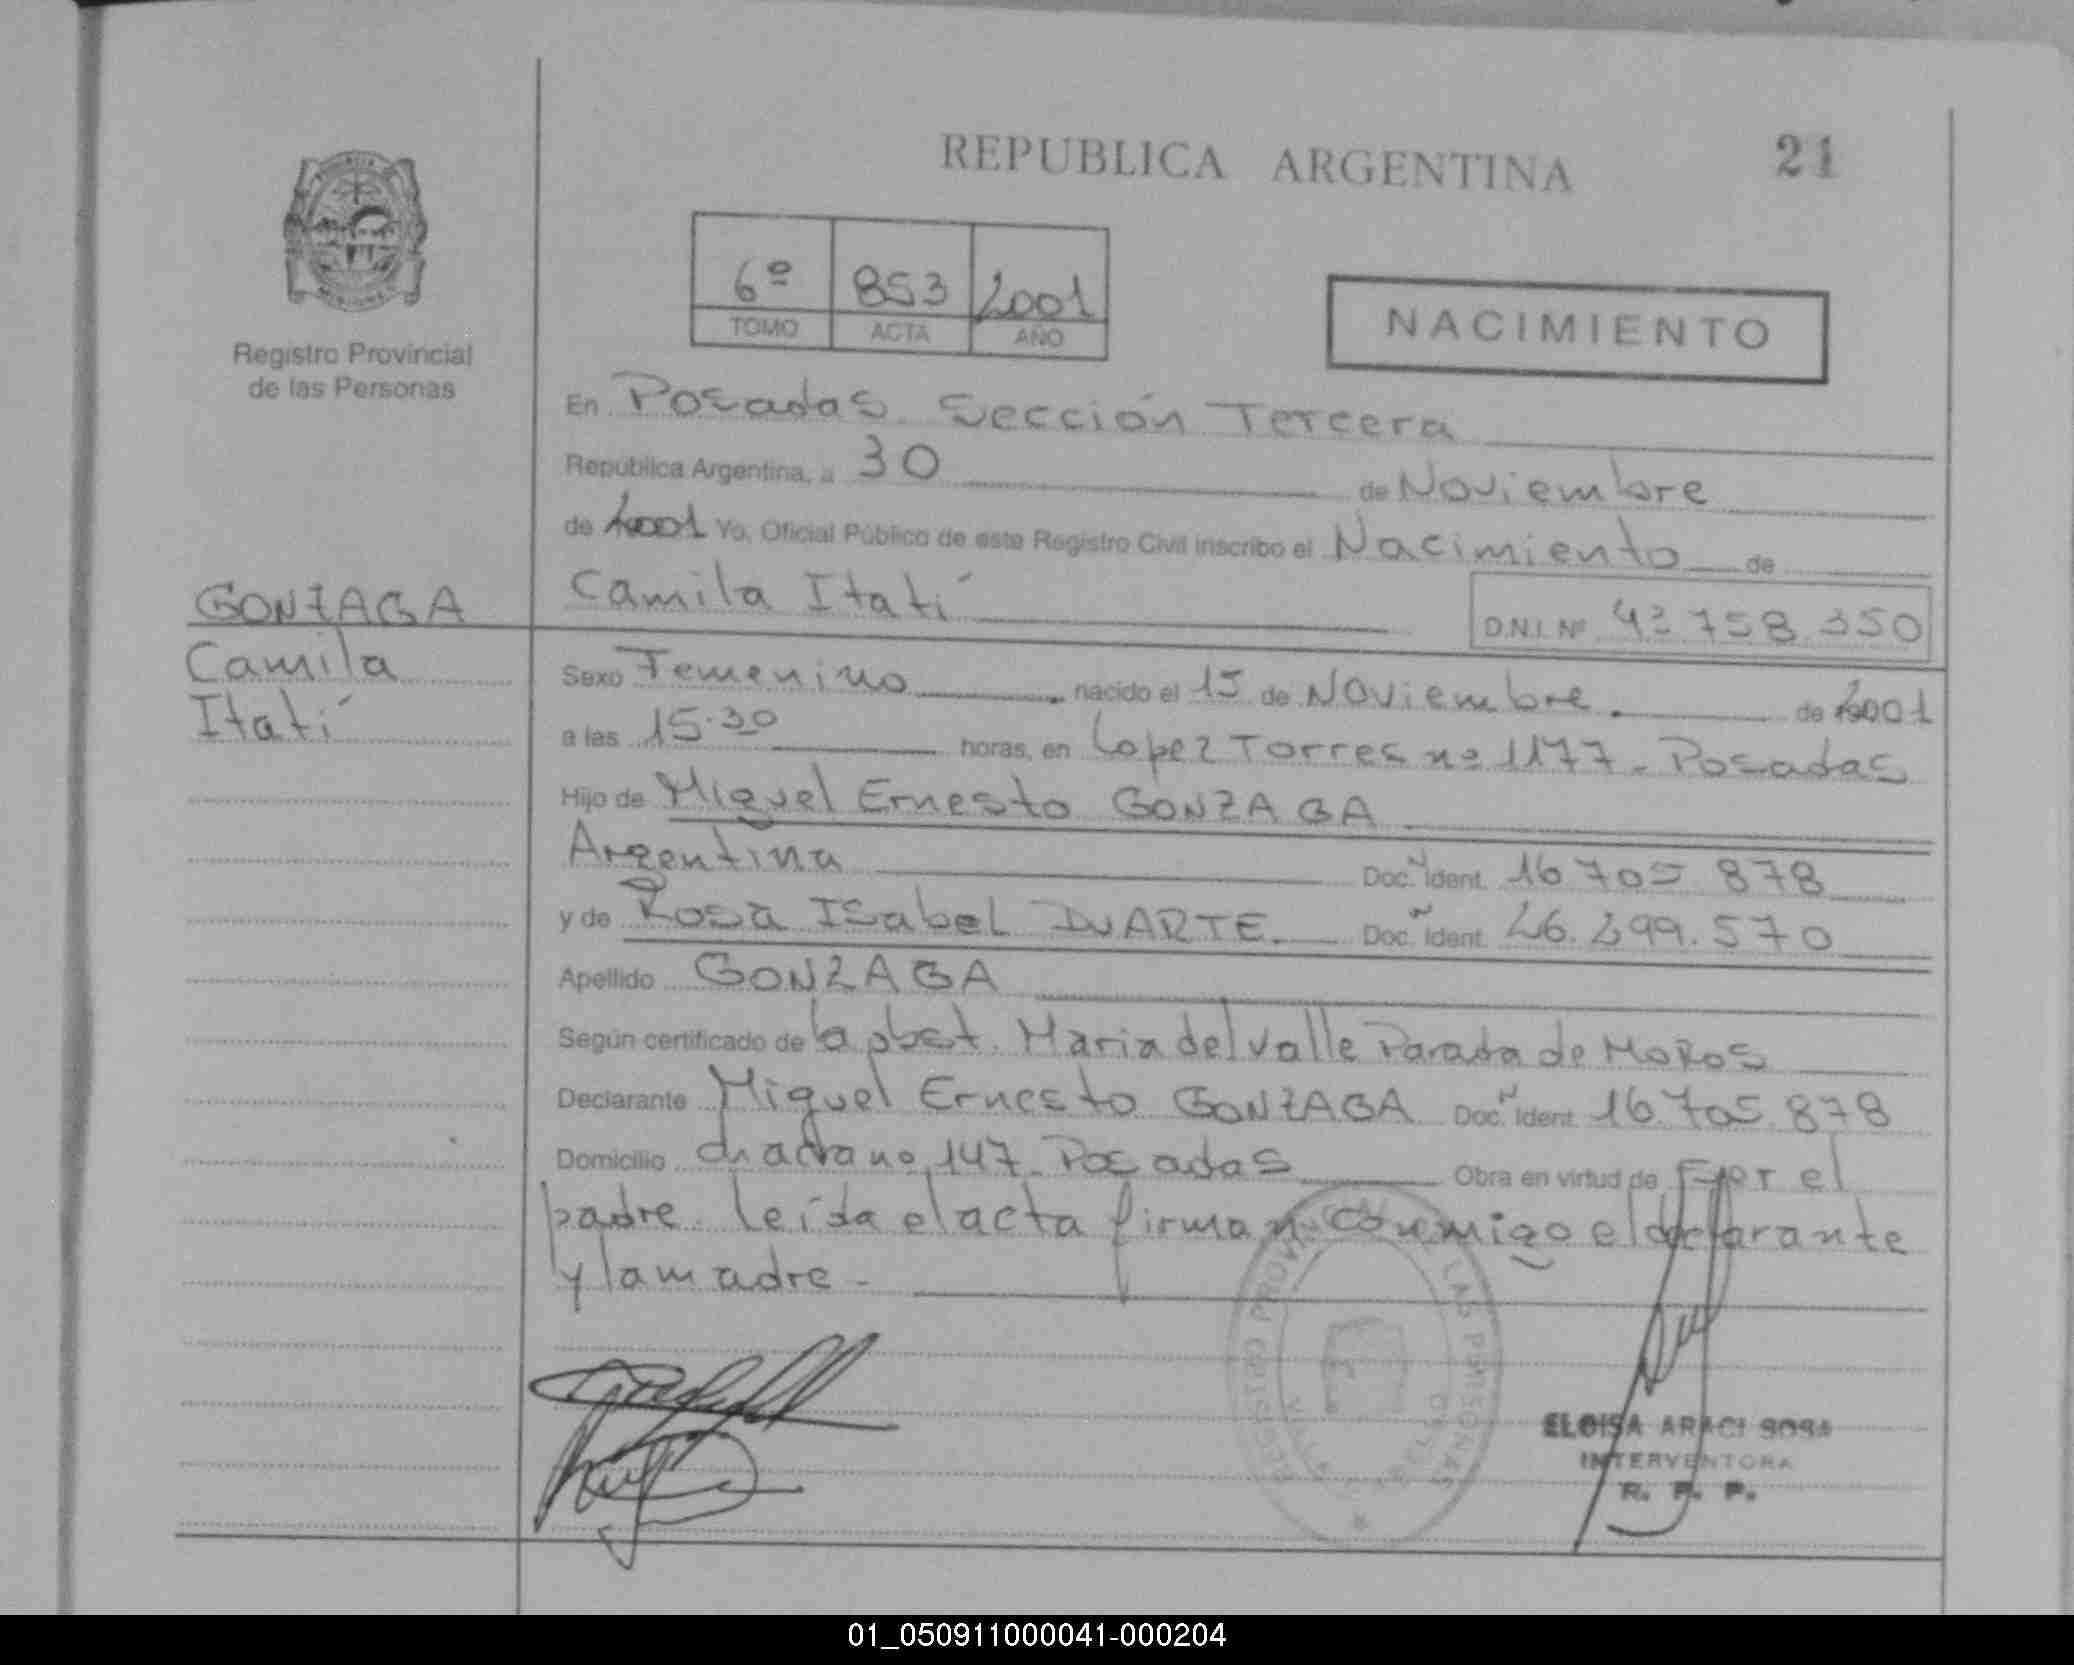 REPUBLICA ARGENTINA
21
6º 853 2001
TOMO ACTA AÑO
NACIMIENTO
Registro Provincial
de las Personas
En Posadas Sección Tercera
República Argentina, a 30 de Noviembre
de 2001 Yo, Oficial Público de este Registro Civil inscribo el Nacimiento de
GONZAGA
Camila Itatí
D.N.I. Nº 43 758 350
Camila
Itatí
Sexo Femenino nacido el 15 de Noviembre de 2001
a las 15.30 horas, en Lopez Torres nº 1177 - Posadas
Hijo de Miguel Ernesto GONZAGA
Argentina Doc. Ident. 16 705 878
y de Rosa Isabel DUARTE Doc. Ident. 26.299.570
Apellido GONZAGA
Según certificado de la obst. Maria del Valle Parada de Moros
Declarante Miguel Ernesto GONZAGA Doc. Ident. 16.705.878
Domicilio chacra nº 147 - Posadas Obra en virtud de por el
padre. Leída el acta firman conmigo el declarante
y la madre -
REGISTRO PROVINCIAL DE LAS PERSONAS
ELOISA ARACI SOSA
INTERVENTORA
R. P. P.
01_050911000041-000204